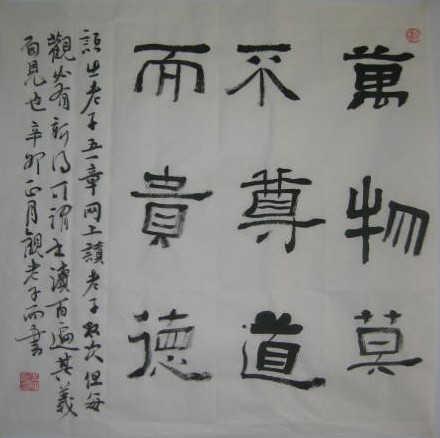 萬物莫
不尊道
而貴德
語出老子五一章网上讀老子数次但每
觀必有新得可謂书讀百遍其義
自見也辛卯正月觀老子而書